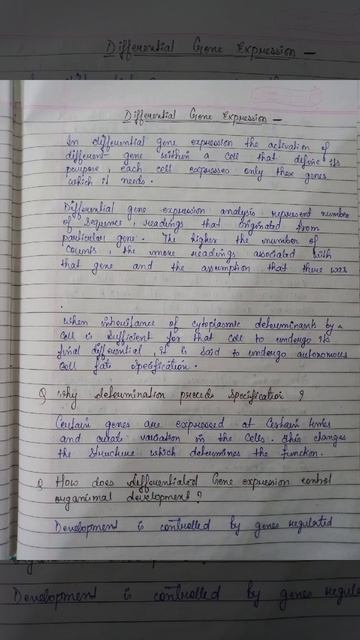 Differential Gene Expression -
Differential Gene Expression -
In differential gene expression the activation of
different gene within a cell that define its
purpose, each cell expresses only those genes
which it needs.
Differential gene expression analysis represent number
of sequence, readings that originated from
particular gene. The higher the number of
counts, the more readings associated with
that gene and the assumption that there was
When inheritance of cytoplasmic determinants by a
cell is sufficient for that cell to undergo its
final differential, it is said to undergo autonomous
cell fate specification.
Q Why determination precede specification ?
Certain genes are expressed at certain times
and create variation in the cells. This changes
the structure which determines the function.
Q How does differentiated Gene expression control
organismal development?
Development is controlled by genes regulated
Development is controlled by genes regula